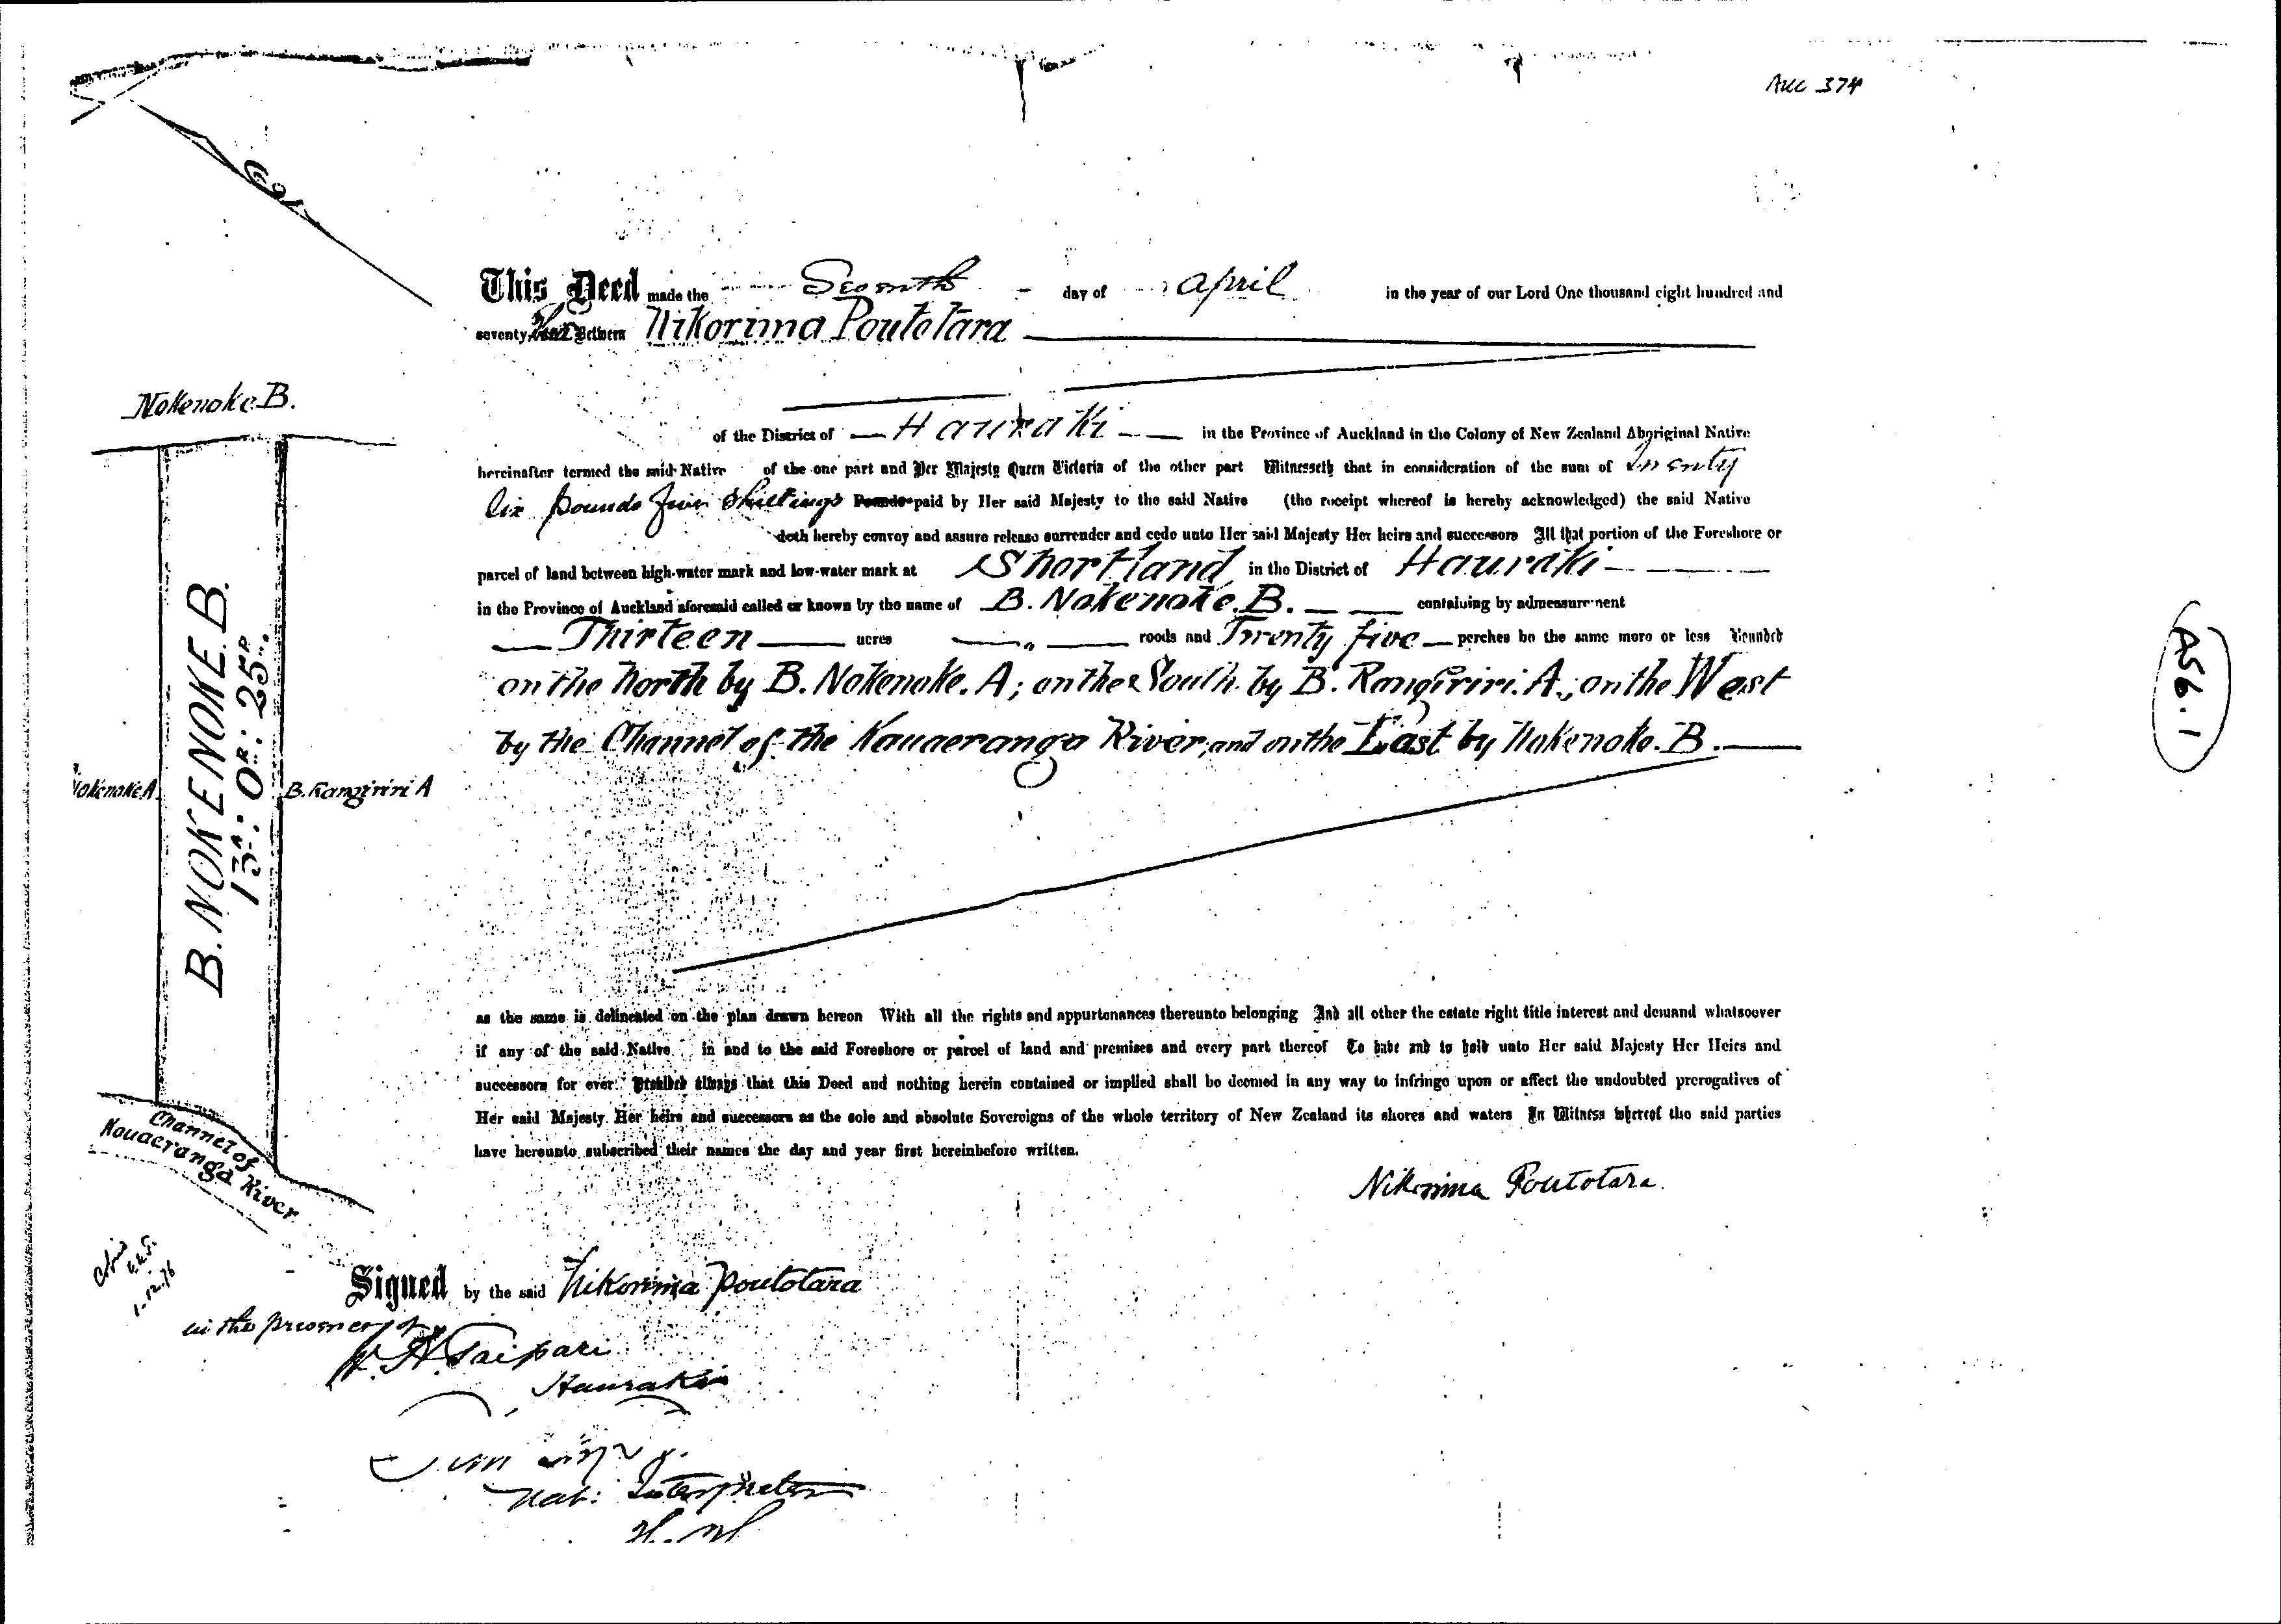 AUC 374
This Deed made the Seventh day of April in the year of our Lord One thousand eight hundred and
seventy Between Nikorima Poutotara
of the District of Hauraki in the Province of Auckland in the Colony of New Zealand Aboriginal Native
hereinafter termed the said Native of the one part and Her Majesty Queen Victoria of the other part Witnesseth that in consideration of the sum of Twenty
Six pounds five shillings Pounds paid by Her said Majesty to the said Native (the receipt whereof is hereby acknowledged) the said Native
doth hereby convey and assure release surrender and cede unto Her said Majesty Her heirs and successors All that portion of the Foreshore or
parcel of land between high-water mark and low-water mark at Shortland in the District of Hauraki
in the Province of Auckland aforesaid called or known by the name of B. Nokenoke. B. containing by admeasurement
Thirteen acres " roods and Twenty five perches be the same more or less Bounded
on the North by B. Nokenoke. A; on the South by B. Rangiriri. A; on the West
by the Channel of the Kauaeranga River, and on the East by Nokenoke. B.
as the same is delineated on the plan drawn hereon With all the rights and appurtenances thereunto belonging And all other the estate right title interest and demand whatsoever
if any of the said Native in and to the said Foreshore or parcel of land and premises and every part thereof To have and to hold unto Her said Majesty Her Heirs and
successors for ever. Provided always that this Deed and nothing herein contained or implied shall be deemed in any way to infringe upon or affect the undoubted prerogatives of
Her said Majesty Her heirs and successors as the sole and absolute Sovereigns of the whole territory of New Zealand its shores and waters In Witness whereof the said parties
have hereunto subscribed their names the day and year first hereinbefore written.
Nikorima Poutotara.
Signed by the said Nikorima Poutotara
in the presence of
W. H. Taipari
Hauraki
Nat: Interpreter
Nokenoke B.
B. NOKENOKE. B.
13A: 0R: 25P.
Nokenoke A
B. Rangiriri A
Channel of
Kauaeranga River
1-12-76
A56.1